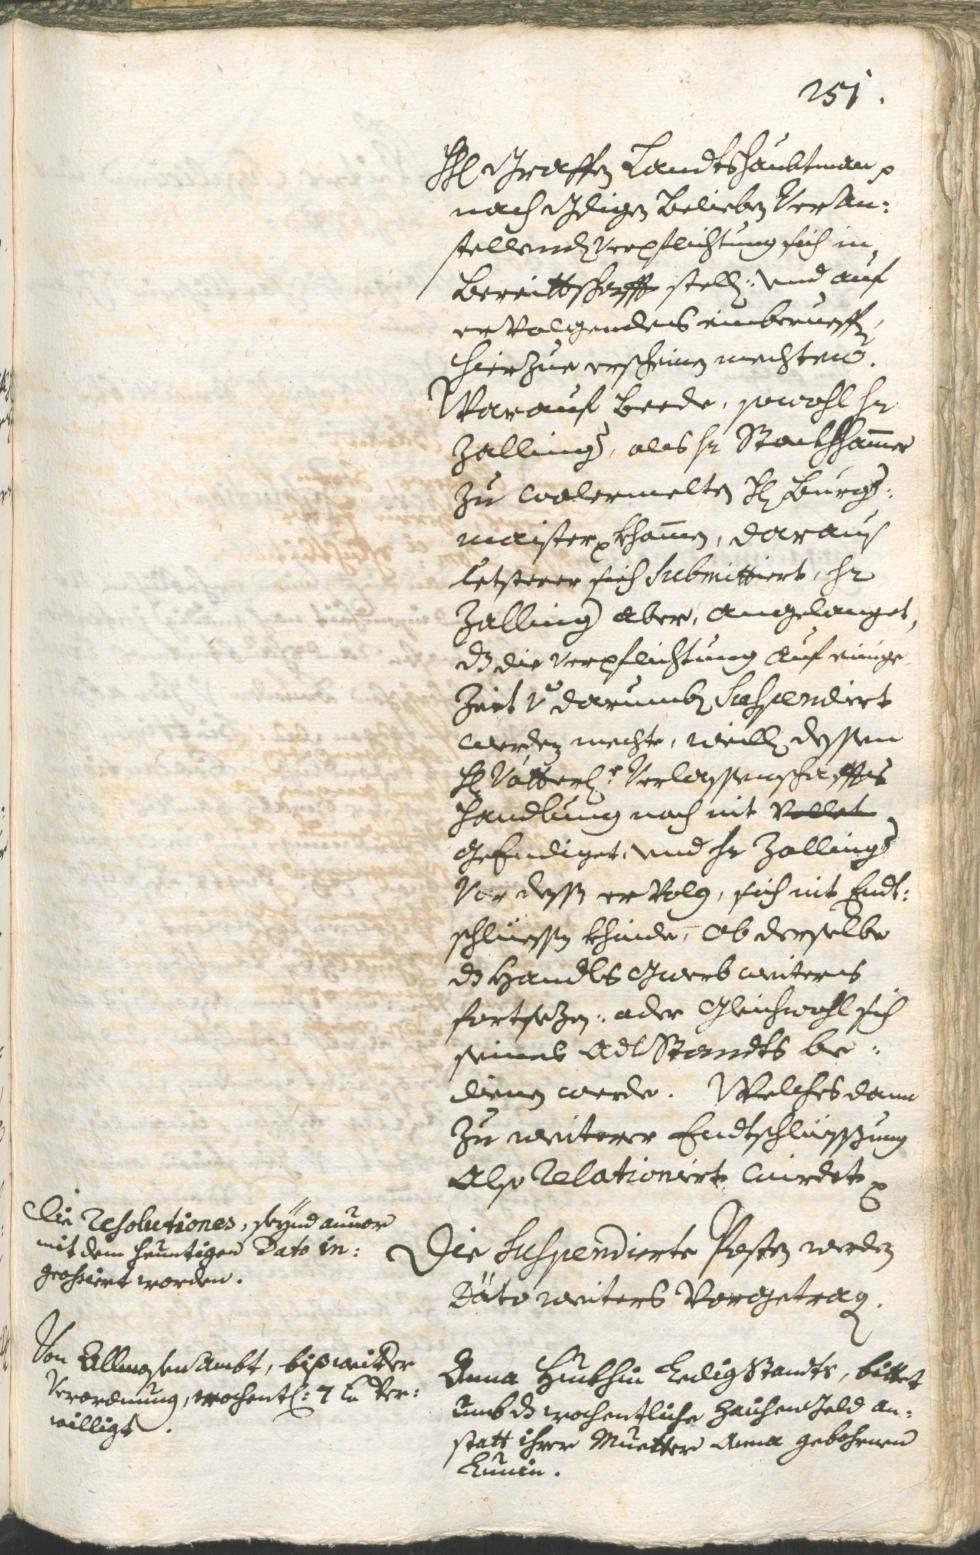 251.
H: Graffen Landtshaubtman p
nach Gdigen belieben Veran:
stellende verpflichtung sich in
bereittschafft stell: und auf
ervolgendes einberueffen,
hierzue erscheinen mechten.
Warauf beede, sowohl hr
Zalling, als hr Stockhamer
zu wolermelten H: Burge:
maister p khomen, darauf
letsterer sich Submittiert, hr
Zalling aber, angelanget,
dz die verpflichtung auf einige
Zeit darumb Suspendiert
werden mechte, weill dessen
H: Vätterl: Verlassenschaffts
handlung noch nit
geEndiget, und hr Zalling
Vor dessen ervolg, sich nit Endt:
schliessen khinde, ob derselbe
dz Handls Gwerb weiters
fortsezen: oder Gleichwohl sich
seines Adl Standts be:
dienen werde. Welches dann
zu weiterer Endtschliessung
also relationiert wirdet p
Die resolutiones, seynd annor
mit dem heuntigen Dato in:
grossiert worden.
Die Suspendierte Posten werden
Dato weiters Vorgetragen.
Von Allmosen Ambt, biß weitter
Verordnung, wochentl: 7 kr Ver:
willigt.
Anna Huebhin Ledig Standts, bittet
umb dz wochentliche Gelt an:
statt ihrer Muetter Anna gebohrnen